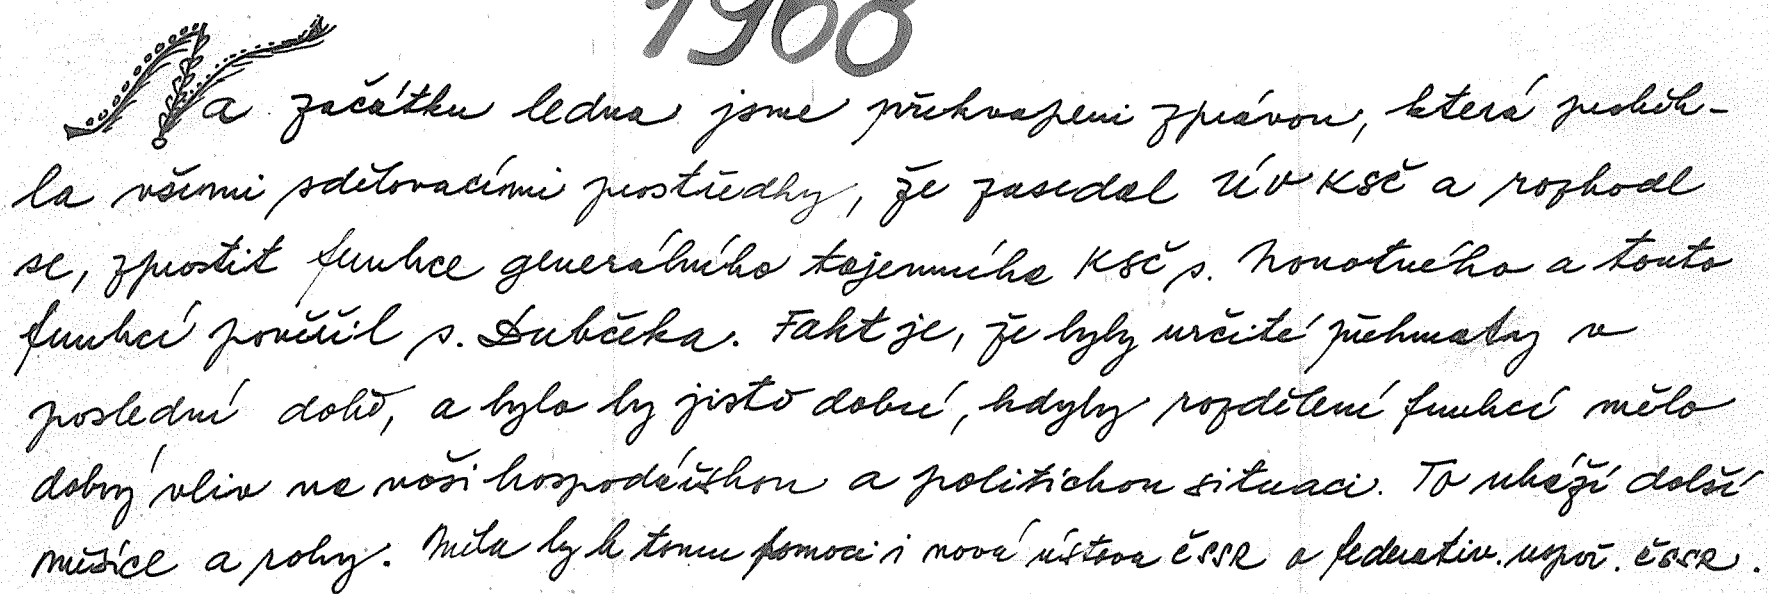 1968
Na začátku ledna jsme překvapeni zprávou, která proběh-
la všemi sdělovacími prostředky, že zasedal ÚV KSČ a rozhodl
se, zprostit funkce generálního tajemníka KSČ s. Novotného a touto
funkcí pověřil s. Dubčeka. Fakt je, že byly určité přehmaty v
poslední době, a bylo by jistě dobré, kdyby rozdělení funkcí mělo
dobrý vliv na naši hospodářskou a politickou situaci. To ukáží další
měsíce a roky. Měla by k tomu pomoci i nová ústava ČSSR a federativ. uspoř. ČSSR.